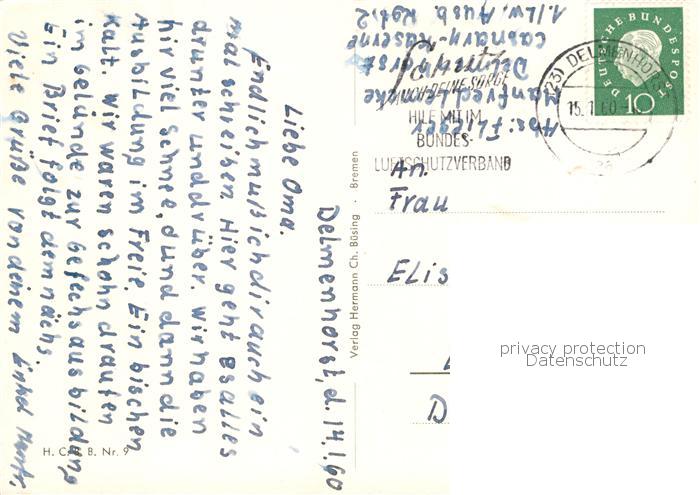 Delmenhorst, d. 14.1.60
Liebe Oma.
Endlich muß ich dir auch ein
mal schreiben. Hier geht es alles
drunter und drüber. wir haben
hir viel schne, dund dann die
Ausbildung im Freie. Ein bischen
Kalt. wir waren schohn draußen
im gelände zur gefechsausbildung
Ein Brief folgt demnächs.
Viele Grüße von deinem Enkel
H. C. B. B. Nr. 9
Verlag Hermann Ch. Büsing · Bremen
Abs: Flieger
Manfred
Delmenhorst
Caspary-Kaserne
1./Lw. Ausb. Rgt. 2
Schutz
AUCH DEINE SORGE
HILF MIT IM
BUNDES-
LUFTSCHUTZVERBAND
(23) DELMENHORST
15.1.60
DEUTSCHE BUNDESPOST
10
An.
Frau
Elis
D
privacy protection
Datenschutz